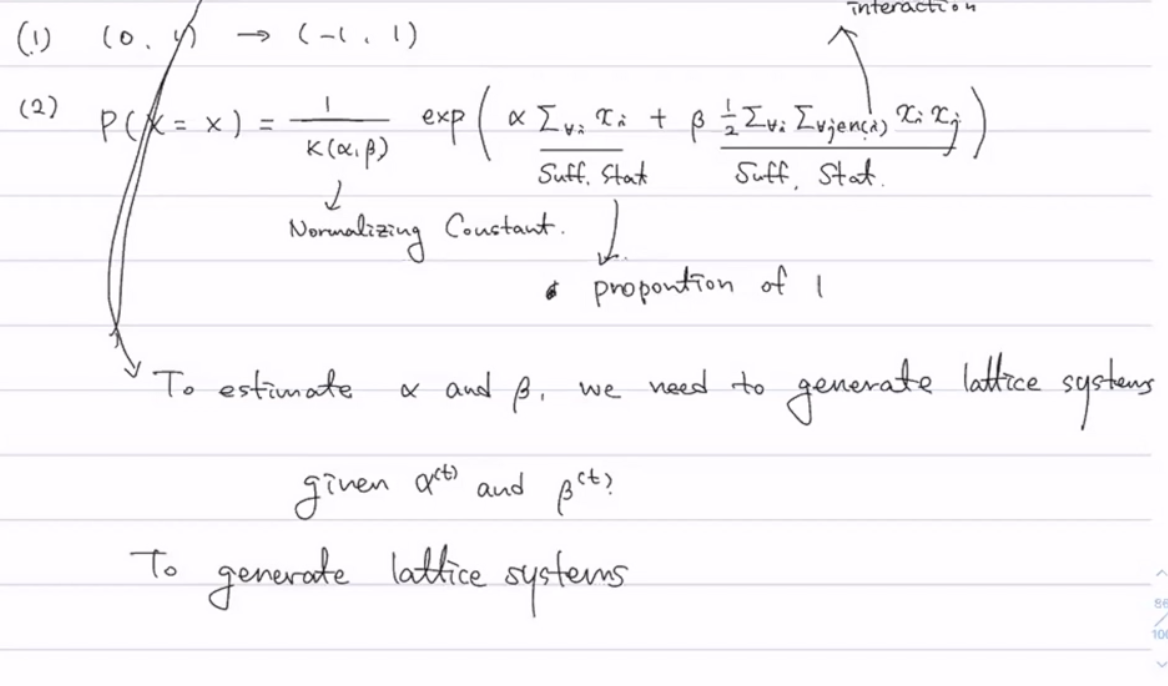 interaction
(1) (0, 1) → (-1, 1)
(2) P(X = x) = 1/K(α,β) exp( α Σ∀i xi + β ½ Σ∀i Σ∀j∈n(i) xi xj )
Suff. Stat Suff. Stat.
Normalizing Constant.
proportion of 1
To estimate α and β, we need to generate lattice systems
given α(t) and β(t)?
To generate lattice systems
86
/
100